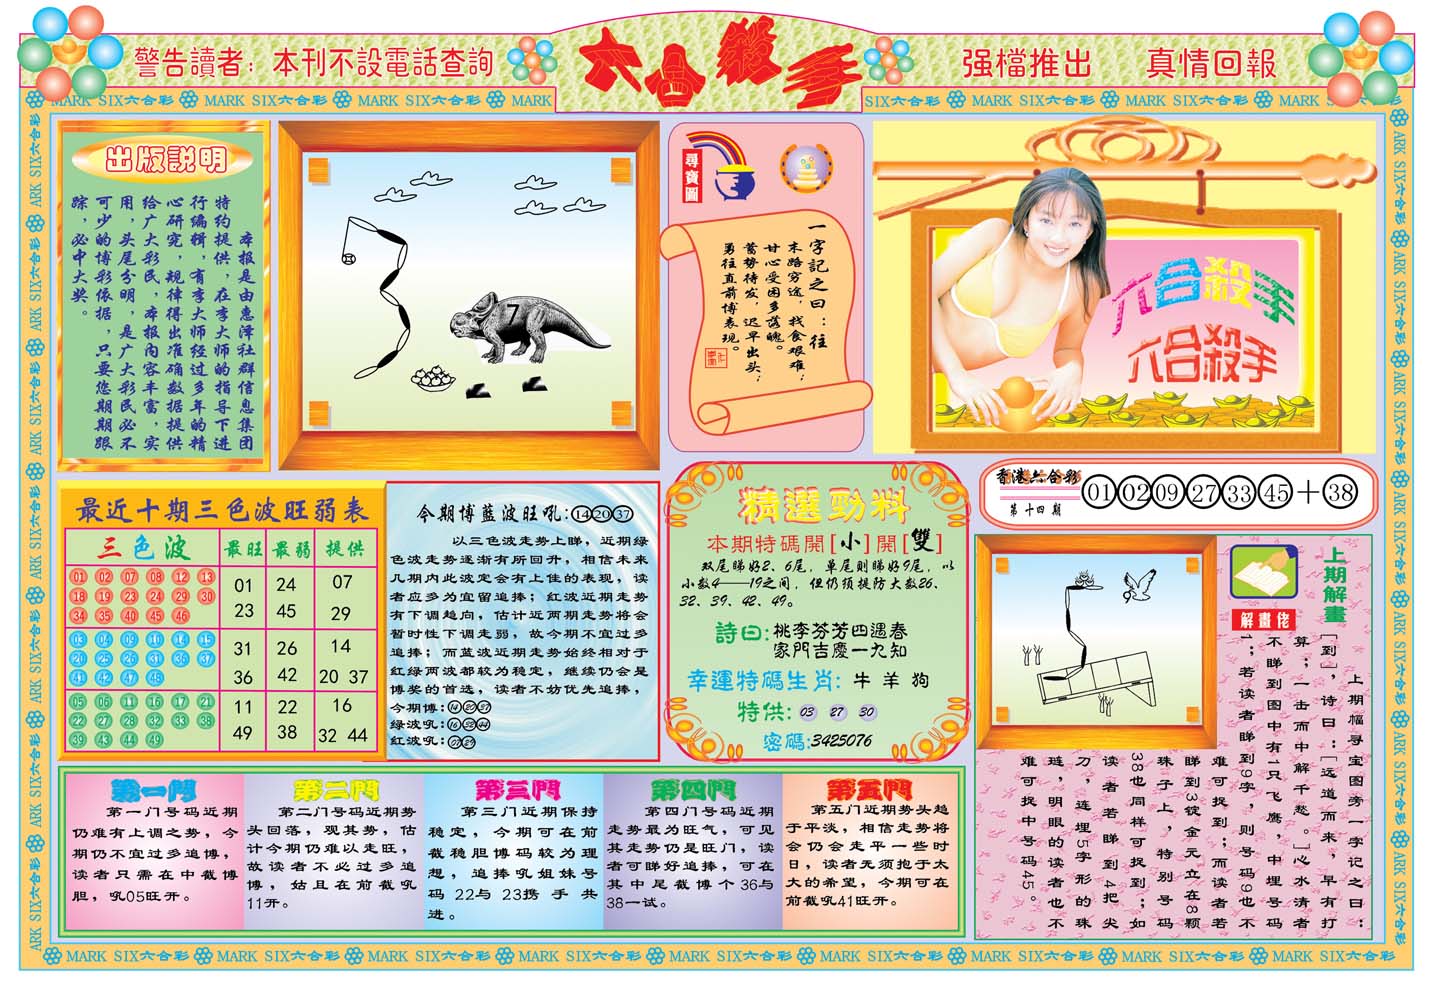 警告讀者：本刊不設電話查詢
六合殺手
强檔推出 真情回報
MARK SIX六合彩 MARK SIX六合彩 MARK SIX六合彩 MARK
SIX六合彩 MARK SIX六合彩 MARK SIX六合彩 MARK SIX六合彩
出版説明
本报是由惠泽社群信息集团
特约提供，在李大师的指导下进
行编辑，有李大师经过多年的精
心研究，规律得出准确数据提供
给广大彩民，本报内容丰富，实
用，头尾分明，是广大彩民必不
可少的博彩依据，只要您期期跟
踪，必中大奖。
7
尋寶圖
一字記之曰：往
末路穷途，找食艰难；
甘心受困多落魄。
蓄势待发，迟早出头；
勇往直前博表现。
六合殺手
六合殺手
香港六合彩
第十四期
01 02 09 27 33 45 + 38
最近十期三色波旺弱表
三色波 最旺 最弱 提供
01 02 07 08 12 13
18 19 23 24 29 30
34 35 40 45 46
01 24 07
23 45 29
03 04 09 10 14 15
20 25 26 31 36 37
41 42 47 48
31 26 14
36 42 20 37
05 06 11 16 17 21
22 27 28 32 33 38
39 43 44 49
11 22 16
49 38 32 44
今期博藍波旺吼：14 20 37
以三色波走势上睇，近期绿
色波走势逐渐有所回升，相信未来
几期内此波定会有上佳的表现，读
者应多为宜留追捧；红波近期走势
有下调趋向，估计近两期走势将会
暂时性下调走弱，故今期不宜过多
追捧；而蓝波近期走势始终相对于
红绿两波都较为稳定，继续仍会是
博奖的首选，读者不妨优先追捧，
今期博：14 20 37
绿波吼：16 32 44
红波吼：07 29
精選勁料
本期特碼開[小]開[雙]
双尾睇好2、6尾，单尾则睇好9尾，以
小数4——19之间，但仍须提防大数26、
32、39、42、49。
詩曰：桃李芬芳四遇春
家門吉慶一九知
幸運特碼生肖：牛 羊 狗
特供：03 27 30
密碼：3425076
上期解畫
解畫佬
上期幅寻宝图旁一字记之曰：
[到]，诗曰：[远道而来，早有打
算；一击而中解千愁。]心水清者
不睇到图中有1只飞鹰，中埋号码
1；若读者睇到9字，则号码9也不
难可捉到；而读者若
睇到3锭金元立在8颗
珠子上，特别号码
38也同样可捉到；如
读者若睇到4把尖
刀，连埋5字形的珠
琏，明眼的读者也不
难可捉中号码45。
第一門
第一门号码近期
仍难有上调之势，今
期仍不宜过多追博，
读者只需在中截博
胆，吼05旺开。
第二門
第二门号码近期势
头回落，观其势，估
计今期仍难以走旺，
故读者不必过多追
博，姑且在前截吼
11开。
第三門
第三门近期保持
稳定，今期可在前
截稳胆博码较为理
想，追捧吼姐妹号
码22与23携手共
进。
第四門
第四门号码近期
走势最为旺气，可见
其走势仍是旺门，读
者可睇好追捧，可在
其中尾截博个36与
38一试。
第五門
第五门近期势头趋
于平淡，相信走势将
会仍会走平一些时
日，读者无须抱于太
大的希望，今期可在
前截吼41旺开。
MARK SIX六合彩 MARK SIX六合彩 MARK SIX六合彩 MARK SIX六合彩 MARK SIX六合彩 MARK SIX六合彩 MARK SIX六合彩 MARK SIX六合彩 MARK SIX六合彩